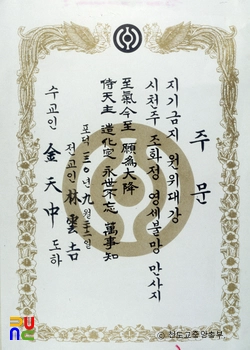 주문
지기금지 원위대강
시천주 조화정 영세불망 만사지
至氣今至 願爲大降
侍天主 造化定 永世不忘 萬事知
포덕 一三○年 九월 二三일
전교인 林雲吉
수교인 金天中 도하
ⓒ 천도교중앙총부